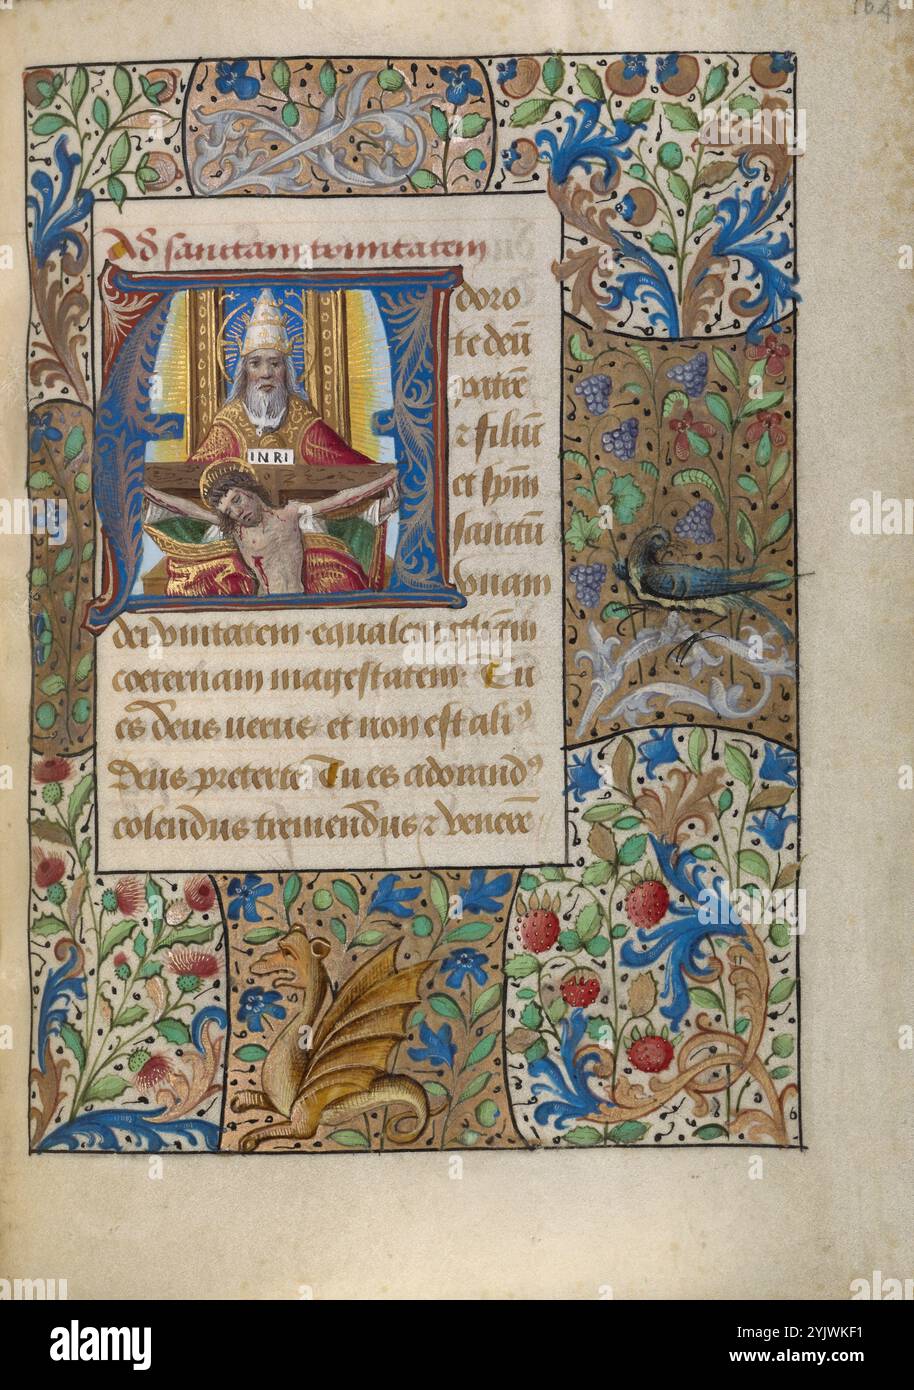 164
Ad sanctam trinitatem
INRI
Adoro
te deū
patrē
⁊ filiū
et sp̄m
sanctū
vnam
dei vnitatem equalem gl̄iam
coeternam magestatem Tu
es deus verus et non est aliꝰ
deus preter te Tu es adorandꝰ
colendus tremendus ⁊ venerē
alamy
Image ID: 2YJWKF1
www.alamy.com